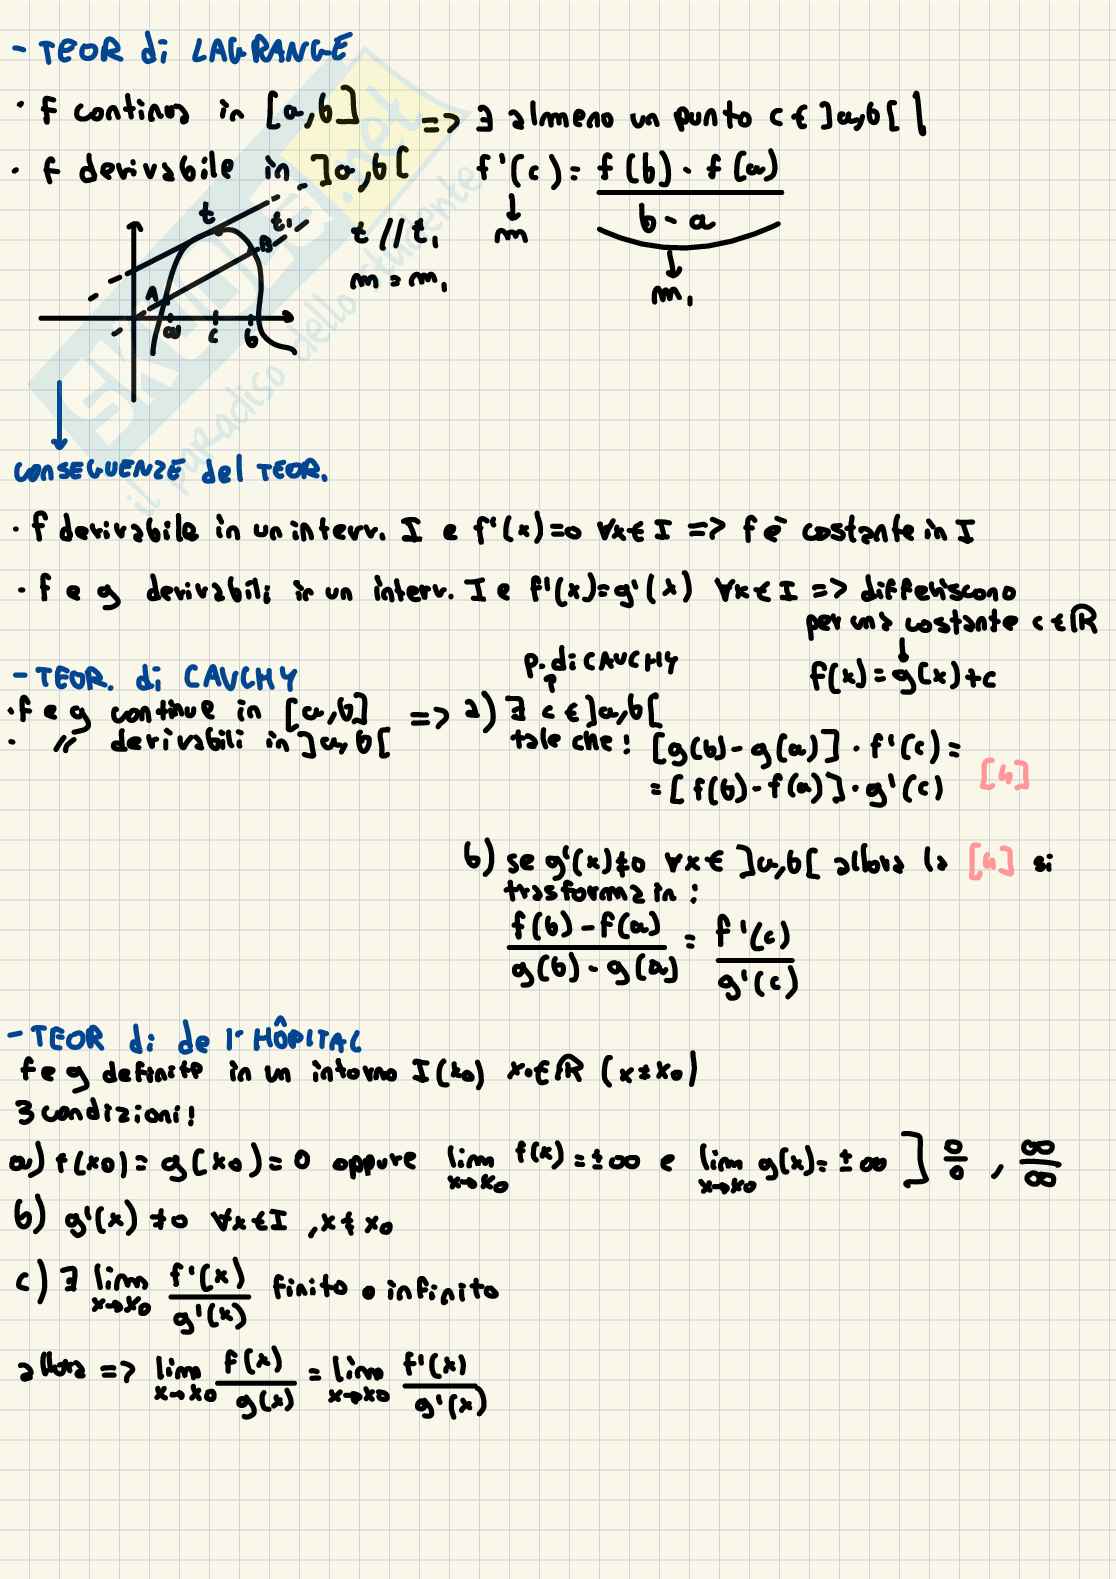 - TEOR di LAGRANGE
· f continua in [a,b] => ∃ almeno un punto c ∈ ]a,b[ |
· f derivabile in ]a,b[ f'(c) = (f(b) - f(a)) / (b - a)
t // t₁ m
m = m₁ m₁
t t₁
A B
a c b
CONSEGUENZE del TEOR.
· f derivabile in un interr. I e f'(x)=0 ∀x∈I => f è costante in I
· f e g derivabili in un interv. I e f'(x)=g'(x) ∀x∈I => differiscono
per una costante c∈ℝ
f(x)=g(x)+c
- TEOR. di CAUCHY
p. di CAUCHY
· f e g continue in [a,b] => a) ∃ c∈]a,b[
· // derivabili in ]a,b[ tale che: [g(b)-g(a)]·f'(c)=
=[f(b)-f(a)]·g'(c) [4]
b) se g'(x)≠0 ∀x∈ ]a,b[ allora la [4] si
trasforma in:
(f(b)-f(a)) / (g(b)-g(a)) = f'(c) / g'(c)
- TEOR di de l'HÔPITAL
f e g definite in un intorno I(x₀) x₀∈ℝ (x≠x₀)
3 condizioni!
a) f(x₀)=g(x₀)=0 oppure lim x→x₀ f(x)=±∞ e lim x→x₀ g(x)=±∞ ] 0/0 , ∞/∞
b) g'(x)≠0 ∀x∈I , x≠x₀
c) ∃ lim x→x₀ f'(x)/g'(x) finito o infinito
allora => lim x→x₀ f(x)/g(x) = lim x→x₀ f'(x)/g'(x)
skuola.net
il paradiso dello studente